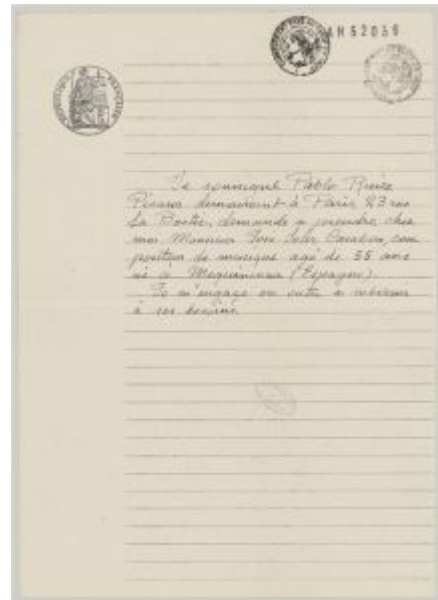 AM 52036
RÉPUBLIQUE FRANÇAISE
Je soussigné Pablo Ruiz
Picasso demeurant à Paris 23 rue
La Boétie, demande a prendre chez
moi Monsieur José Soler Casabon, com
positeur de musique agé de 55 ans
né à Mequinenza (Espagne).
Je m'engage en outre a subvenir
à ses besoins